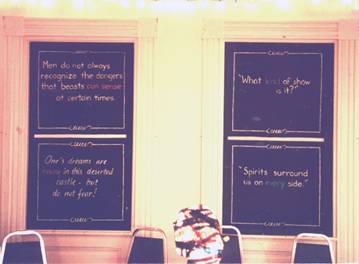 Men do not always
recognize the dangers
that beasts can sense
at certain times.
One's dreams are
in this deserted
castle - but
do not fear!
"What kind of show
is it?"
"Spirits surround
us on every side."